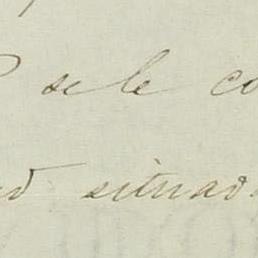 se le co
ed situad